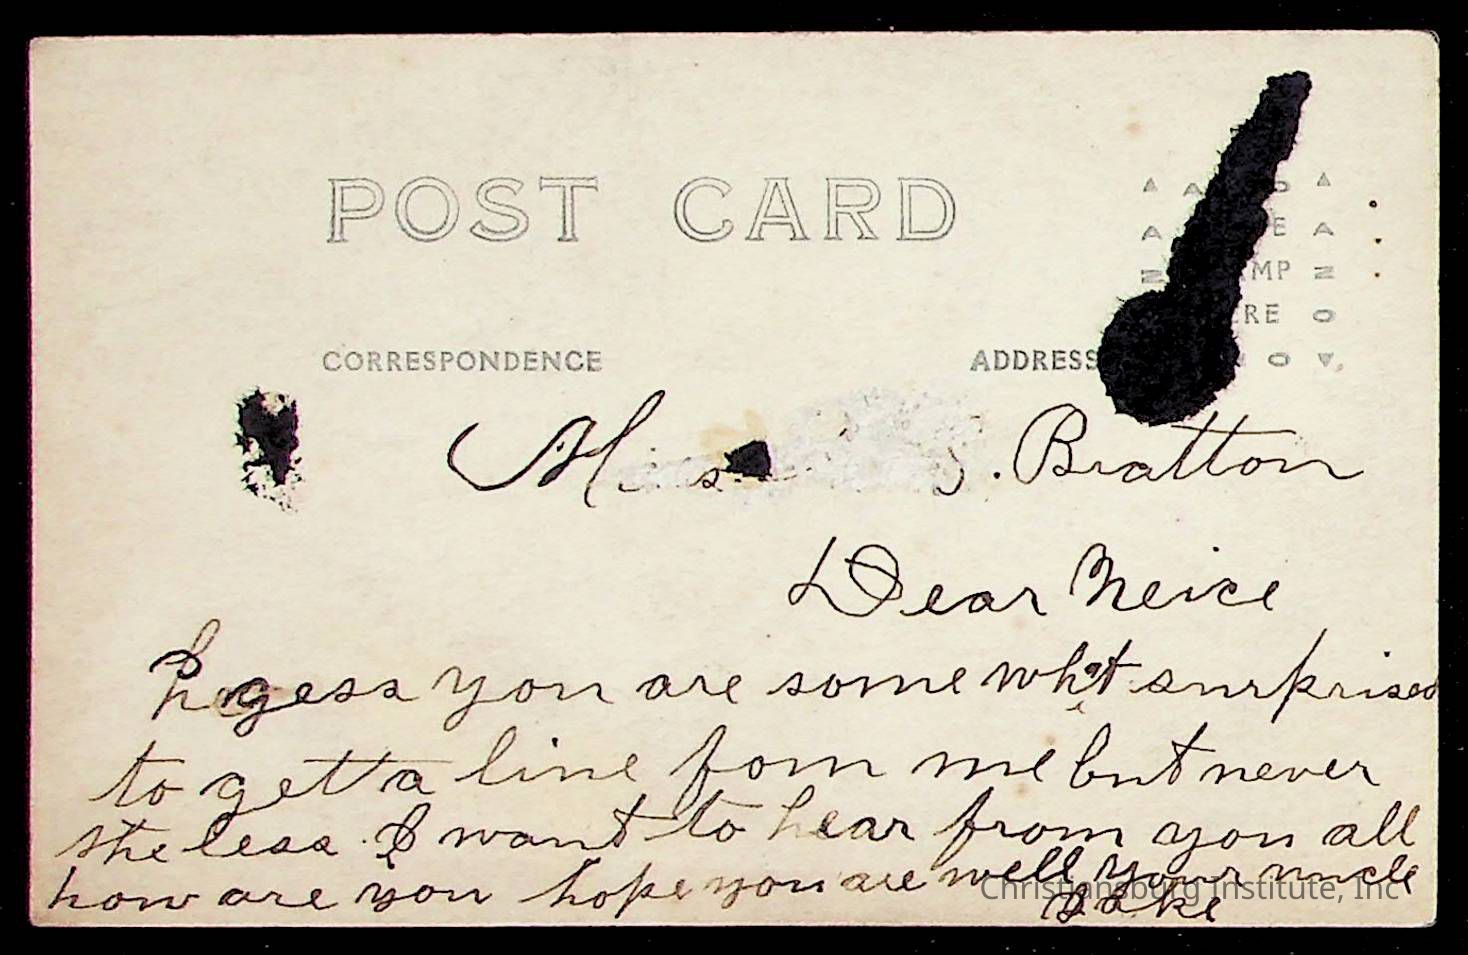 POST CARD
CORRESPONDENCE
ADDRESS
Miss S. Bratton
Dear Neice
I gess you are some what surkrised
to gett a line fom me but never
the less. I want to hear from you all
how are you hope you are well your uncle
Jake
Christiansburg Institute, Inc